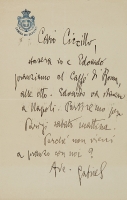 Caro Ciccillo,
stasera io e Edoardo
pranziamo al Caffè di Roma,
alle otto. Edoardo
a Napoli. Partiremo per
Parigi sabato mattina.
Perché non vieni
a pranzo con noi?
Ave - Gabriel